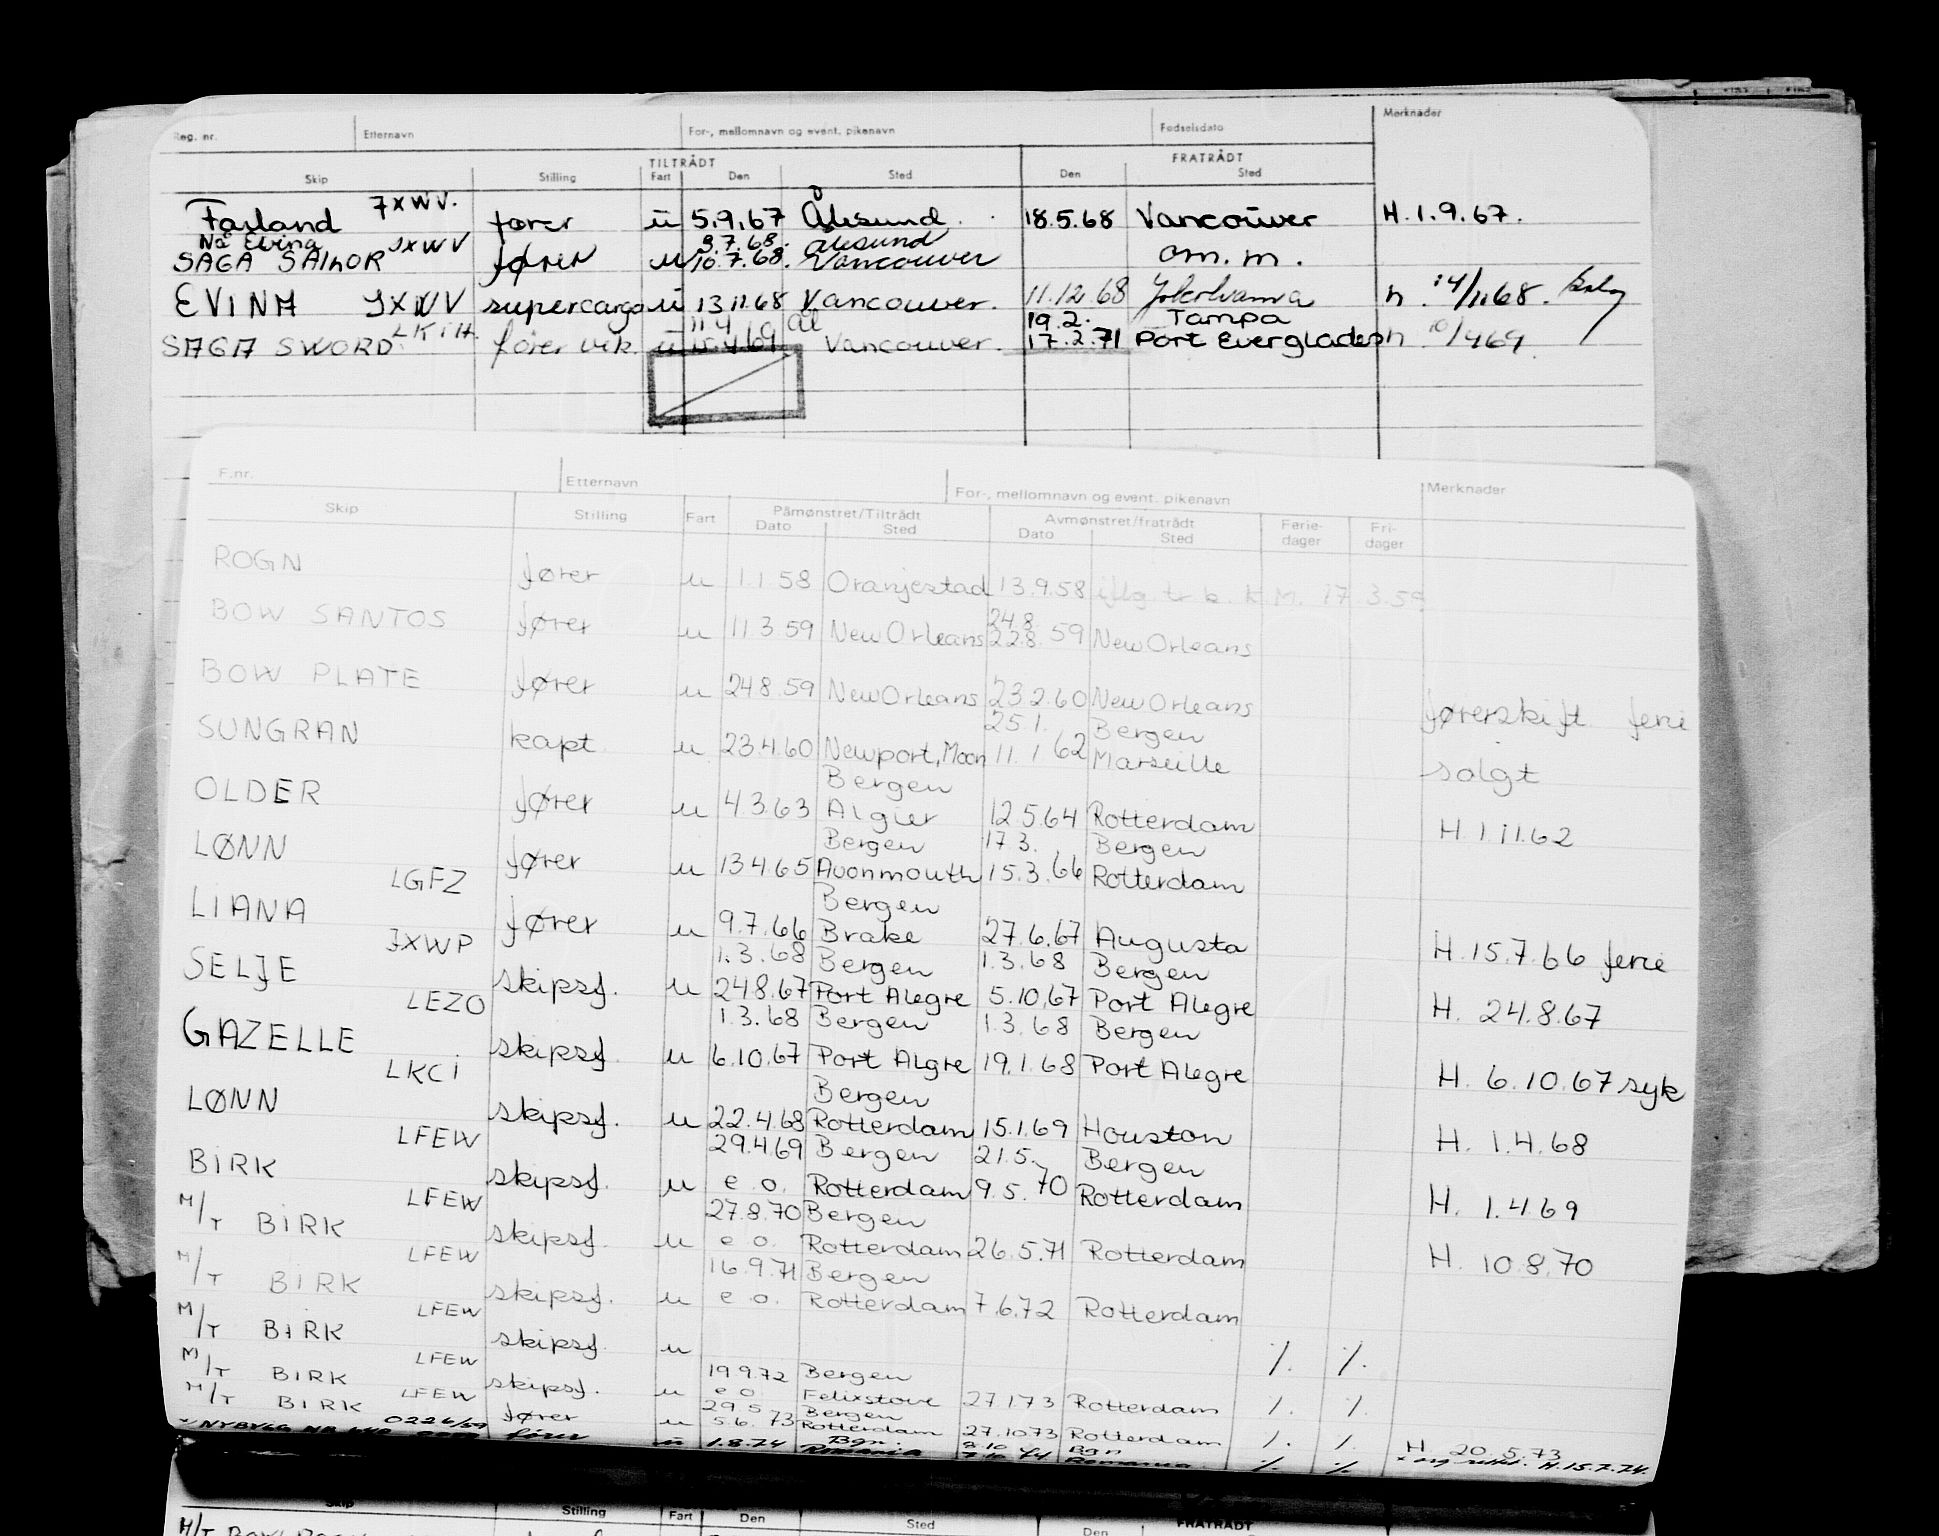 Reg. nr. Etternavn For-, mellomnavn og event. pikenavn Fødselsdato Merknader
TILTRÅDT FRATRÅDT
Skip Stilling Fart Den Sted Den Sted
Farland JXWV. fører u 5.9.67 Ålesund. 18.5.68 Vancouver H. 1.9.67.
Nå Evina 3.7.68. Ålesund
SAGA SAILOR JXWV fører u 10.7.68. Vancouver om.m.
EVINA JXWV supercargo u 13.11.68 Vancouver. 11.12.68 Yokohama h. 14/11 68.
11.4 Ål 19.2. Tampa
SAGA SWORD LKIH. fører vik. u 15.4.69 Vancouver. 17.2.71 Port Everglades h 10/4 69.
F.nr. Etternavn For-, mellomnavn og event. pikenavn Merknader
Skip Stilling Fart Påmønstret/Tiltrådt Avmønstret/fratrådt Ferie- Fri-
Dato Sted Dato Sted dager dager
ROGN fører u 1.1.58 Oranjestad 13.9.58 iflg. tr b. K.M. 17 3.59
24.8.
BOW SANTOS fører u 11.3.59 New Orleans 22.8.59 New Orleans
BOW PLATE fører u 24.8.59 New Orleans 23.2.60 New Orleans førerskift ferie
25.1. Bergen
SUNGRAN kapt. u 23.4.60 Newport, Mon 11.1.62 Marseille solgt
Bergen
OLDER fører u 4.3.63 Algier 12.5.64 Rotterdam H. 1.11.62
Bergen 17.3. Bergen
LØNN fører u 13.4.65 Avonmouth 15.3.66 Rotterdam
LGFZ Bergen
LIANA fører u 9.7.66 Brake 27.6.67 Augusta H. 15.7.66 ferie
JXWP 1.3.68 Bergen 1.3.68 Bergen
SELJE skipsf. u 24.8.67 Port Alegre 5.10.67 Port Alegre H. 24.8.67
LEZO 1.3.68 Bergen 1.3.68 Bergen
GAZELLE skipsf. u 6.10.67 Port Algre 19.1.68 Port Alegre H. 6.10.67 syk
LKCI Bergen
LØNN skipsf. u 22.4.68 Rotterdam 15.1.69 Houston H. 1.4.68
LFEW 29.4.69 Bergen 21.5. Bergen
BIRK skipsf. u e.o. Rotterdam 9.5.70 Rotterdam H. 1.4.69
LFEW 27.8.70 Bergen
M/T BIRK skipsf. u e.o. Rotterdam 26.5.71 Rotterdam H. 10.8.70
LFEW 16.9.71 Bergen
M/T BIRK skipsf. u e.o. Rotterdam 7.6.72 Rotterdam
LFEW
M/T BIRK skipsf. u /. /.
LFEW 19.9.72 Bergen
M/T BIRK skipsf. u e.o. Felixstove 27.1.73 Rotterdam /. /.
LFEW 29.5. Bergen
M/T BIRK fører u 5.6.73 Rotterdam 27.10.73 Rotterdam /. /. H. 20.5.73
0226/59 Bgn. Bgn
NYBYGG NR. fører u 1.8.74 Romania Romania /. /. H. 15.7.74.
Skip Stilling Fart Den Sted Den FRATRÅDT
M/T